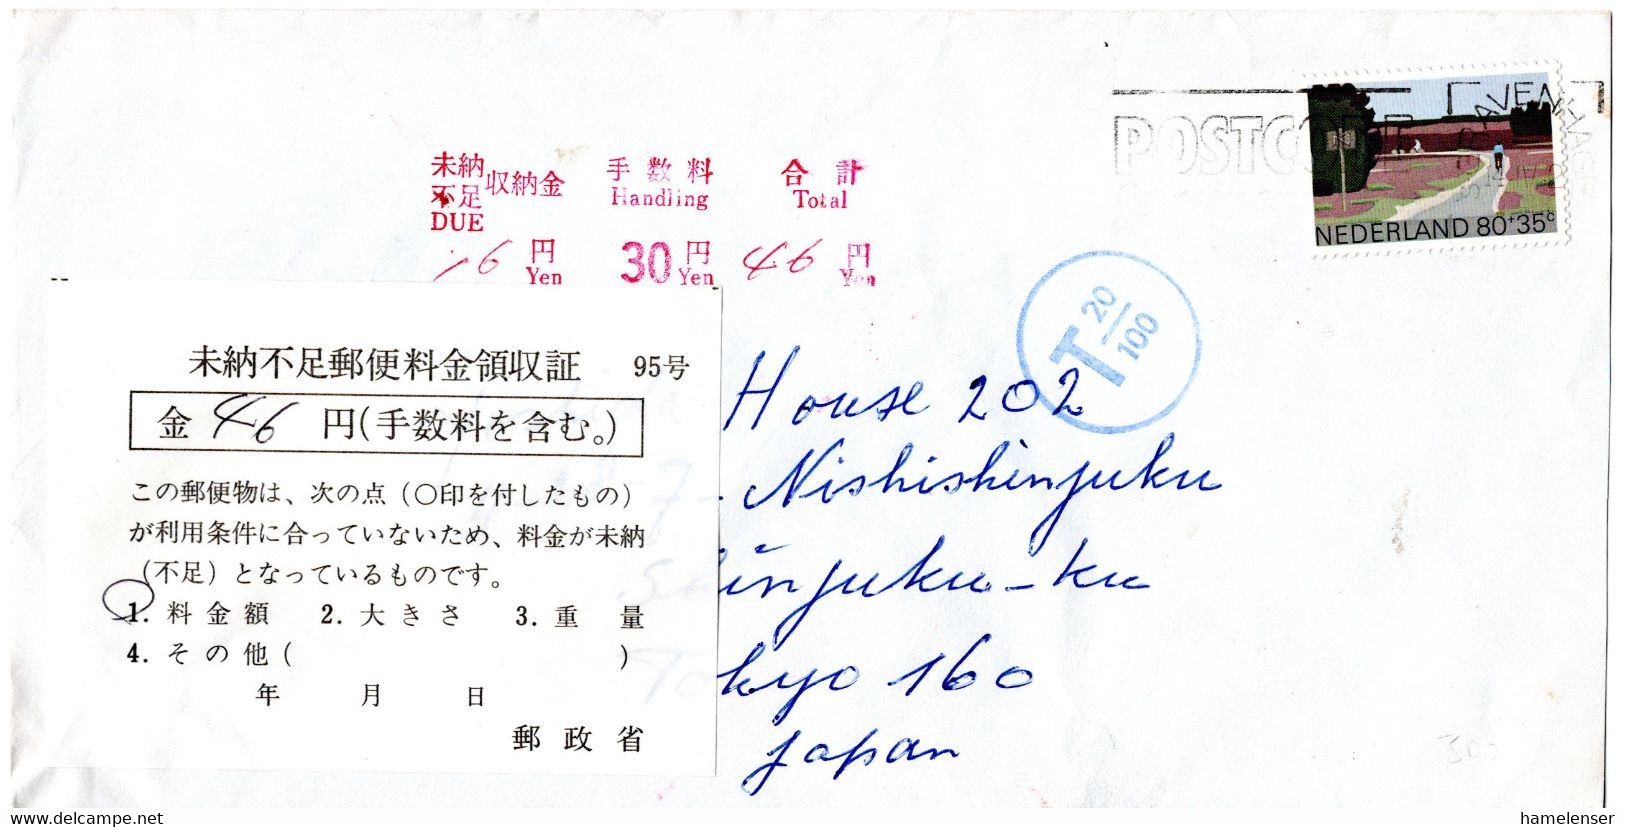 POSTCO
NEDERLAND 80+35c
未納 不足 DUE 収納金 手数料 Handling 合計 Total
16 円 Yen 30 円 Yen 46 円 Yen
T 20/100
未納不足郵便料金領収証 95号
金 46 円(手数料を含む。)
この郵便物は、次の点(○印を付したもの)
が利用条件に合っていないため、料金が未納
(不足)となっているものです。
1. 料金額 2. 大きさ 3. 重量
4. その他( )
年 月 日
郵政省
House 202
Nishishinjuku
Shinjuku-ku
Tokyo 160
Japan
300
www.delcampe.net
hamelenser